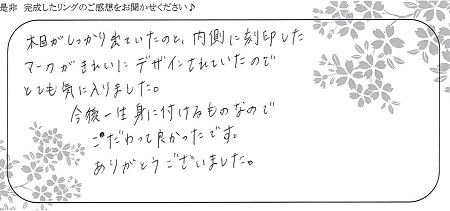 是非 完成したリングのご感想をお聞かせください♪
木目がしっかり出ていたのと、内側に刻印した
マークがきれいにデザインされていたので
とても気に入りました。
今後一生身に付けるものなので
こだわって良かったです。
ありがとうございました。